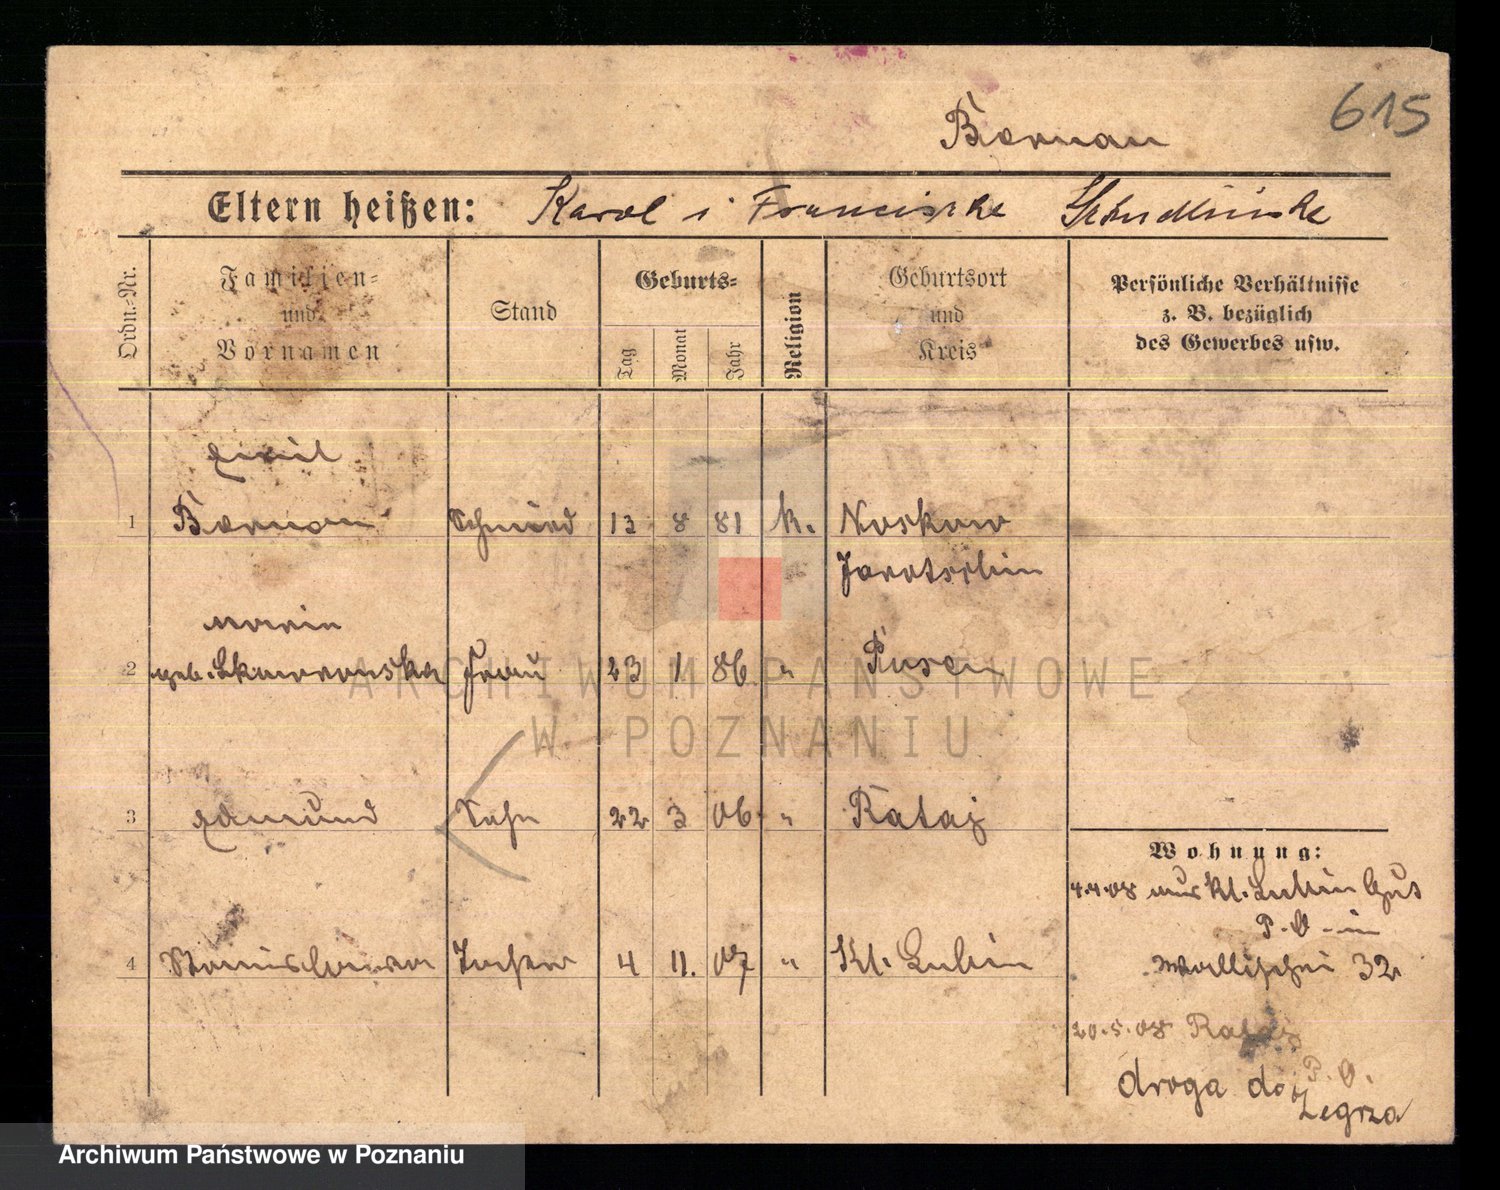 615
Bornau
Eltern heißen: Karol i Franciszka
Ordn.-Nr.
Familien-
und
Vornamen
Stand
Geburts-
Tag
Monat
Jahr
Religion
Geburtsort
und
Kreis
Persönliche Verhältnisse
z. B. bezüglich
des Gewerbes usw.
Emil
1 Bornau Schmied 13 8 81 k. Noskow
Jarotschin
Maria
2 geb. Skowronska Frau 23 1 86 " Posen
3 Edmund Sohn 22 3 06 " Rataj
Wohnung:
4.4.08 aus Kl. Lubin Gus
P. O. in
4 Stanislawa Tochter 4 11. 07 " Kl. Lubin
Wallischei 32
20.5.08 Rataj
P. O.
droga do
Żegrza
ARCHIWUM PAŃSTWOWE
W POZNANIU
Archiwum Państwowe w Poznaniu